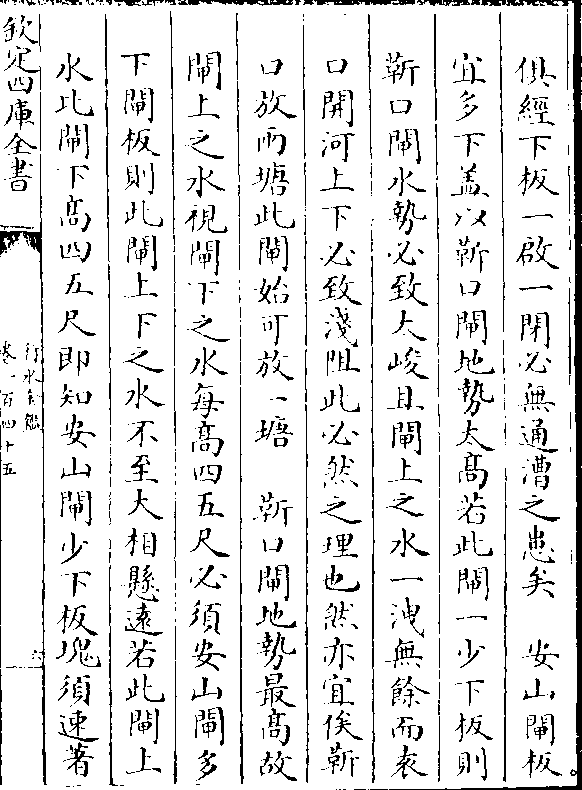 俱經下板一啟一閉必無通漕之患矣　安山閘板
宜多下蓋以靳口閘地勢太高若此閘一少下板則
靳口閘水勢必致太峻且閘上之水一洩無餘而袁
口開河上下必致淺阻此必然之理也然亦宜俟靳
口放兩塘此閘始可放一塘　靳口閘地勢最高故
閘上之水視閘下之水每高四五尺必須安山閘多
下閘板則此閘上下之水不至大相懸遠若此閘上
水比閘下高四五尺即知安山閘少下板塊須速著
欽定四庫全書
行水金鑑
卷一百四十五
六